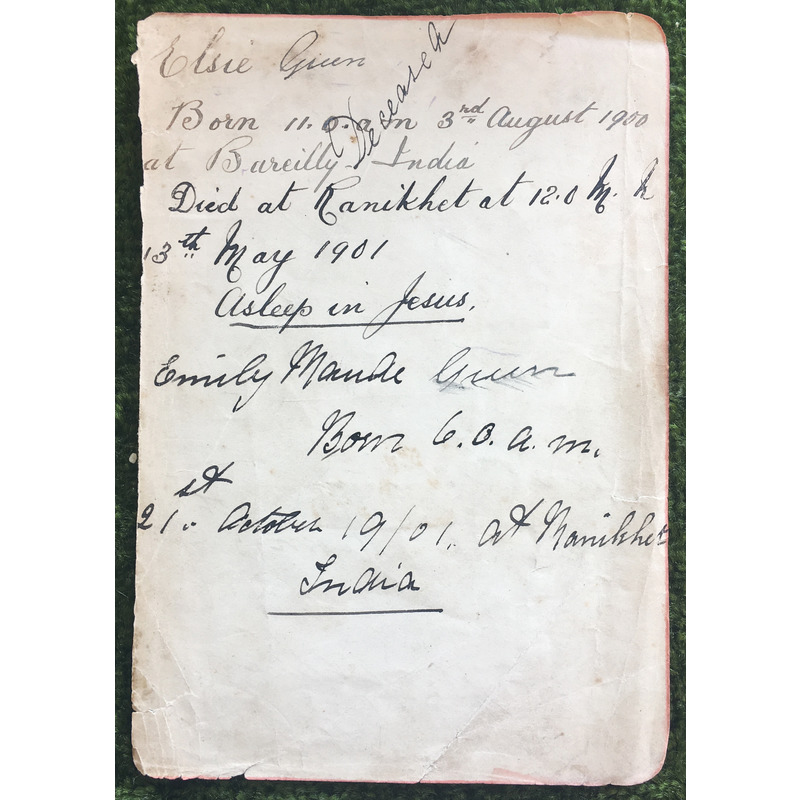 Elsie Green
Deceased
Born 11.0.a.m 3rd August 1900
at Bareilly India
Died at Ranikhet at 12.0 M.
13th May 1901
Asleep in Jesus.
Emily Maude Green
Born 6.0.a.m.
21st October 1901. at Ranikhet
India